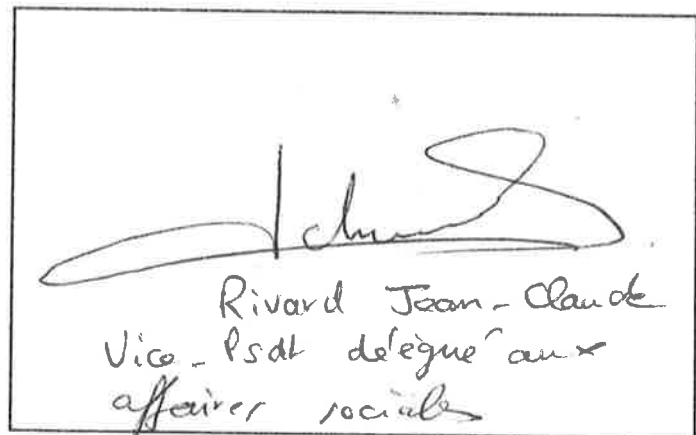 Rivard Jean-Claude
Vice-Psdt délégué aux
affaires sociales